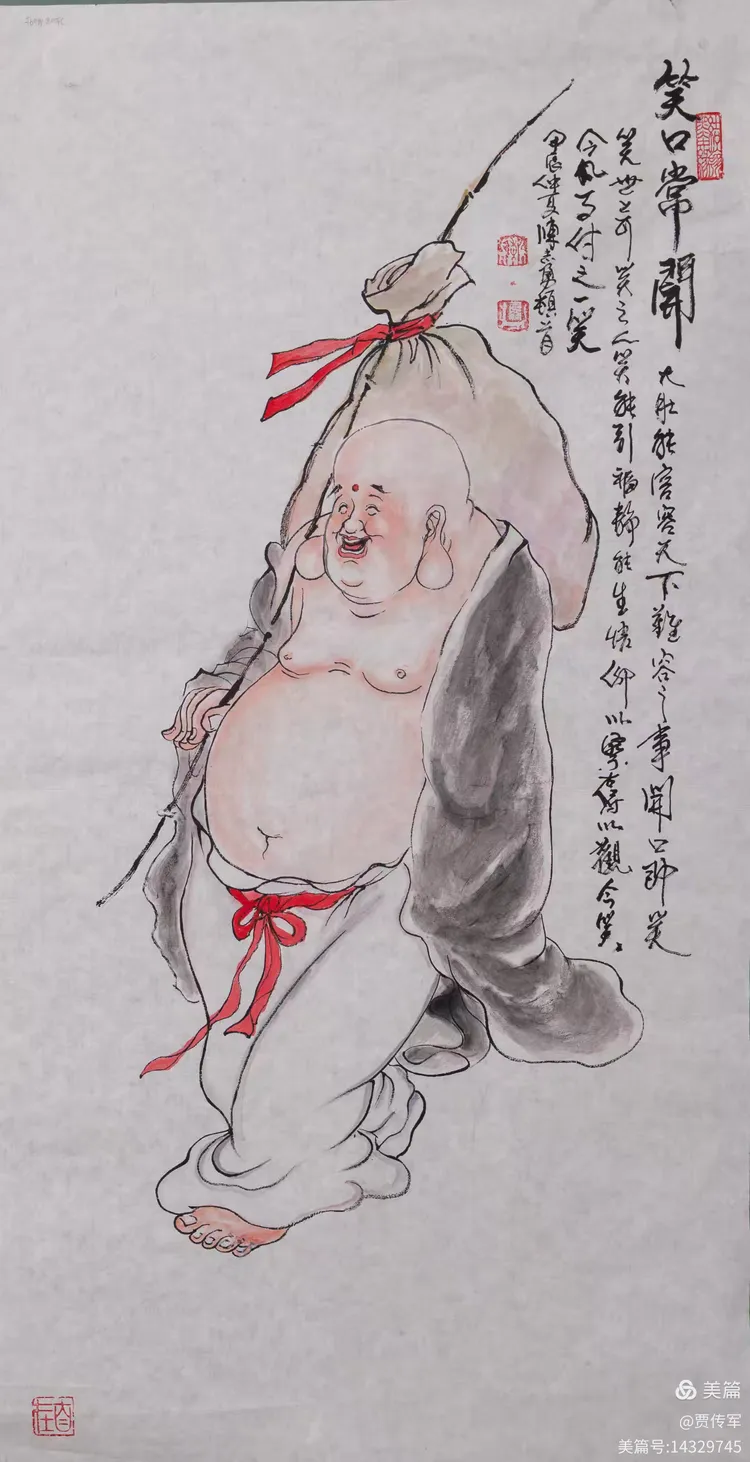 笑口常開
大肚能容容天下難容之事開口即笑
笑世上可笑之人笑能引福静能生悟仰以察古俯以觀今笑
今風月付之一笑
甲辰仲夏陳志勇顿首
自在
美篇
@贾传军
美篇号:14329745